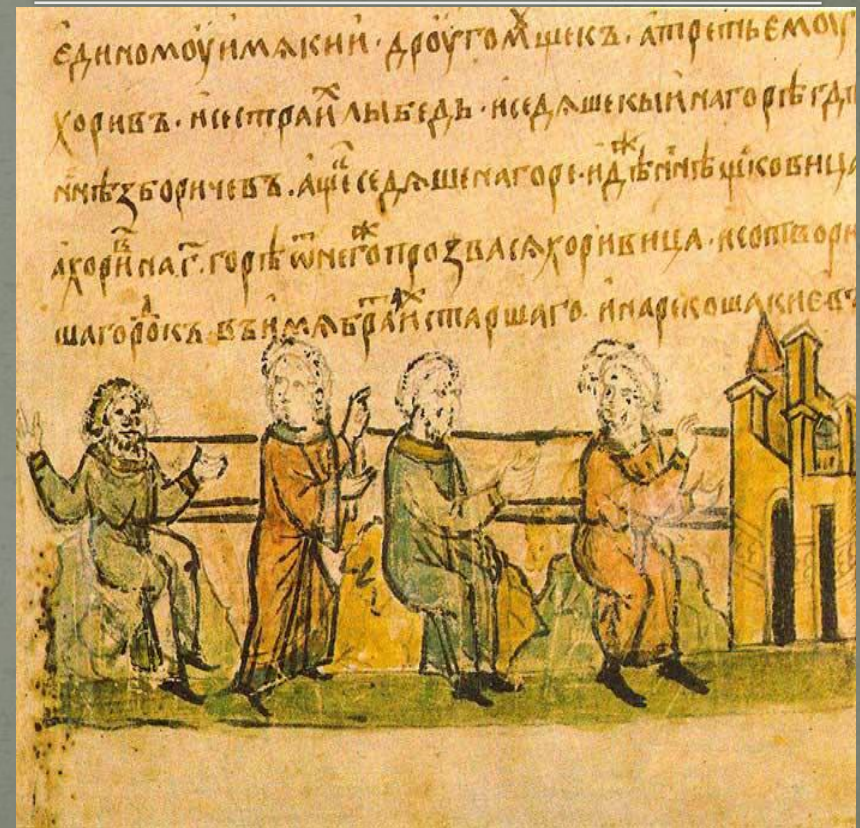 единомоу имѧ кии · дроугоⷨ щекъ · а третьемоу
хоривъ · и сестра иⷯ лыбедь · и седѧше кыи на горѣ гдѣ
ннѣ зборичевъ . а щеⷦ седѧше на горе · идѣⷤ ннѣ щековица
а хориⷡ на г҃ · горѣ ѿ негоⷤ прозвасѧ хоривица · и сотвори
ша гороⷣкъ . въ имѧ браⷮ иⷯ старшаго · и нарекоша киевъ